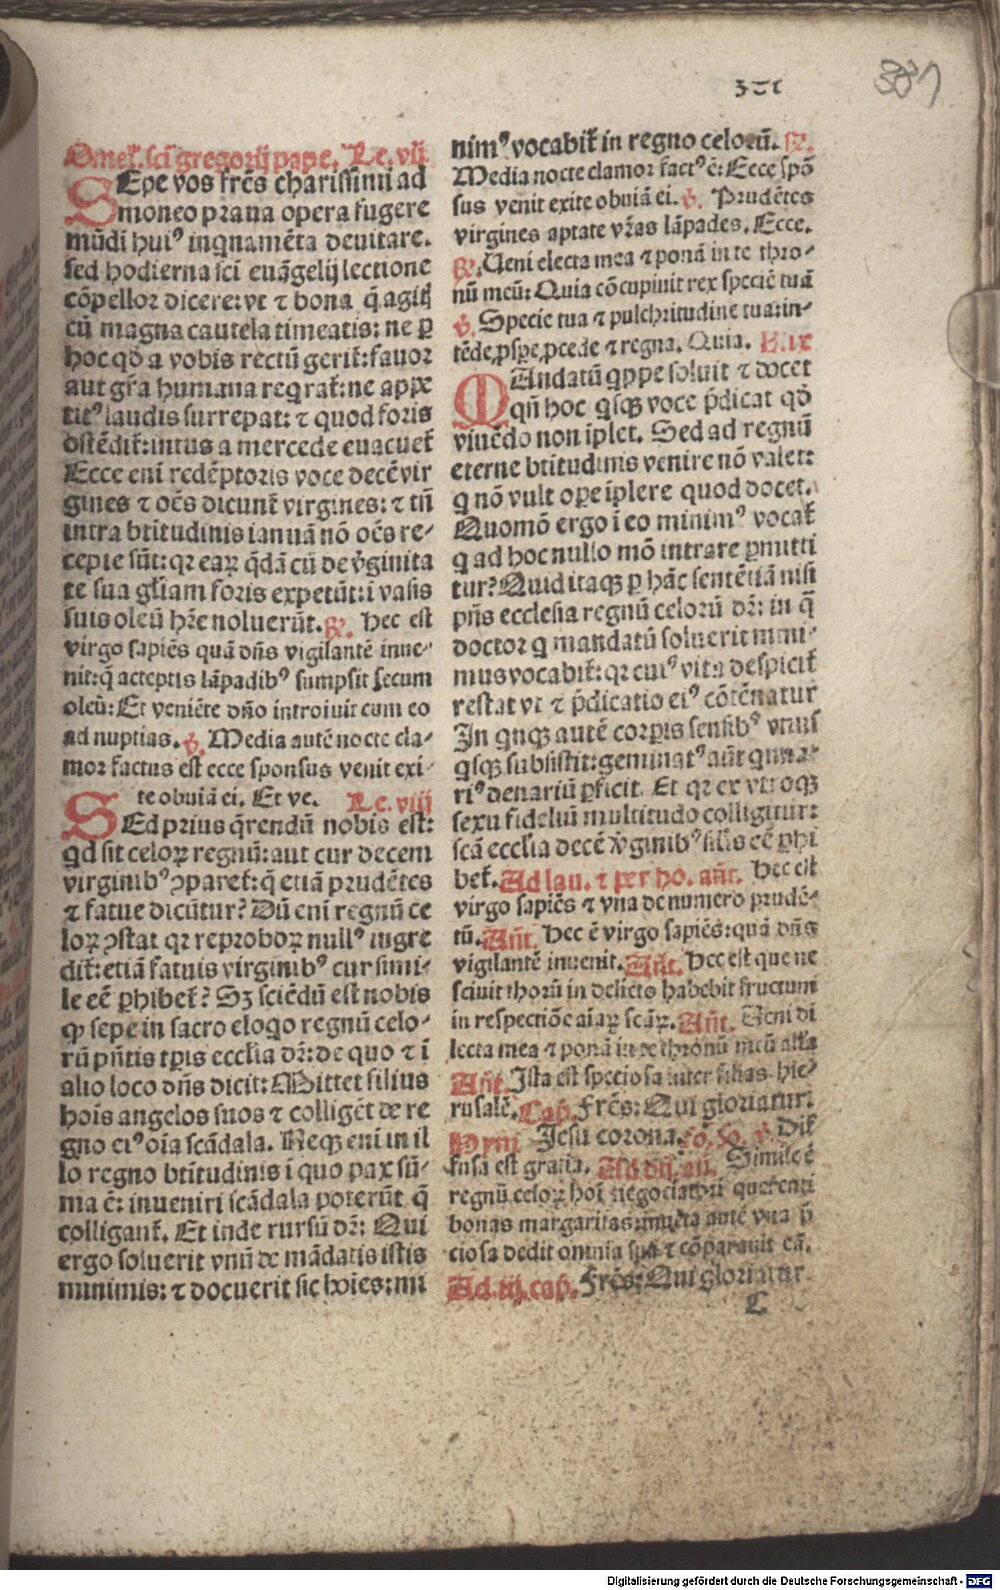 381
Omel̃. sci gregorij pape. Le. vij
SEpe vos frẽs charissimi ad
moneo praua opera fugere
mũdi huiꝰ inqnamẽta deuitare.
sed hodierna sci euãgelij lectione
cõpellor dicere: vt ⁊ bona q̃ agitꝭ
cũ magna cautela timeatis: ne ꝑ
hoc qđ a vobis rectũ gerit̃: fauor
aut gr̃a humana reqrat̃: ne appe
titꝰ laudis surrepat: ⁊ quod foris
ostẽdit̃: intus a mercede euacuet̃
Ecce eni redẽptoris voce decẽ vir
gines ⁊ oẽs dicunt̃ virgines: ⁊ tñ
intra btĩtudinis ianuã nõ oẽs re⸗
cepte sũt: qꝛ eaꝝ q̃dã cũ de v̓ginita
te sua gl̃iam foris expetũt: i vasis
suis oleũ hr̃e noluerũt. ℞. Hec est
virgo sapiẽs quã dñs vigilantẽ inue⸗
nit: q̃ acceptis lãpadibꝰ sumpsit secum
oleũ: Et veniẽte dño introiuit cum eo
ad nuptias. ℣. Media autẽ nocte cla⸗
mor factus est ecce sponsus venit exi⸗
te obuiã ei. Et ve. Le. viij
SEd prius q̃rendũ nobis est:
qd sit celoꝝ regnũ: aut cur decem
virginibꝰ ꝯparet̃: q̃ etiã prudẽtes
⁊ fatue dicũtur? Dũ eni regnũ ce
loꝝ ꝯstat qꝛ reproboꝝ nullꝰ ingre
dit̃: etiã fatuis virginibꝰ cur simi⸗
le eẽ ꝑhibet̃? Sꝫ sciẽdũ est nobis
ꝙ sepe in sacro eloqo regnũ celo⸗
rũ pñtis tꝑis ecclia dr̃: de quo ⁊ ĩ
alio loco dñs dicit: Mittet filius
hois angelos suos ⁊ colligẽt de re
gno eiꝰ oia scãdala. Neqꝫ eni in il
lo regno btĩtudinis i quo pax sũ⸗
ma ẽ: inueniri scãdala poterũt q̃
colligant̃. Et inde rursũ dr̃: Qui
ergo soluerit vnũ de mãdatis istis
minimis: ⁊ docuerit sic hoies: mi
nimꝰ vocabit̃ in regno celorũ. ℞.
Media nocte clamor factꝰ ẽ: Ecce spõ
sus venit exite obuiã ei. ℣. Prudẽtes
virgines aptate vr̃as lãpades. Ecce.
℞. Ueni electa mea ⁊ ponã in te thro⸗
nũ meũ: Quia cõcupiuit rex speciẽ tuã
℣. Specie tua ⁊ pulchritudine tua: in⸗
tẽde ꝓspe ꝓcede ⁊ regna. Quia. L. ix
MAndatũ qppe soluit ⁊ docet
qñ hoc qsqꝫ voce p̃dicat qđ
viuẽdo non iplet. Sed ad regnũ
eterne btĩtudinis venire nõ valet:
q nõ vult oꝑe iplere quod docet.
Quomõ ergo i eo minimꝰ vocat̃
q ad hoc nullo mõ intrare ꝑmitti
tur? Quid itaqꝫ ꝑ hãc sentẽtiã nisi
pñs ecclesia regnũ celorũ dr̃: in q̃
doctor q mandatũ soluerit mini⸗
mus vocabit̃: qꝛ cuiꝰ vita despicit̃
restat vt ⁊ p̃dicatio eiꝰ cõtẽnatur
In qnqꝫ autẽ corꝑis sensibꝰ vnus
qsqꝫ subsistit: geminatꝰ aũt quina⸗
riꝰ denariũ ꝑficit. Et qꝛ ex vtroqꝫ
sexu fideliũ multitudo colligitur:
scã ecclia decẽ v̓ginibꝰ silis eẽ ꝑhi
bet̃. Ad lau. ⁊ per ho. añt. Hec est
virgo sapiẽs ⁊ vna de numero prudẽ⸗
tũ. Añt. Hec ẽ virgo sapiẽs: quã dñs
vigilantẽ inuenit. Añt. Hec est que ne
sciuit thorũ in delicto habebit fructum
in respectiõe aiaꝝ scãꝝ. Añt. Ueni di
lecta mea ⁊ ponã in te thronũ meũ alla
Añt. Ista est speciosa inter filias hie⸗
rusalẽ. Cap̃. Frẽs: Qui gloriatur:
Hymꝰ Jesu corona. Dif
fusa est gratia. Simile ẽ
regnũ celoꝝ hoi negociatori querenti
bonas margaritas: inuẽta autẽ vna p̃
ciosa dedit omnia sua ⁊ cõparauit eã.
Ad. iij. cap̃. Frẽs: Qui gloriatur.
C
Digitalisierung gefördert durch die Deutsche Forschungsgemeinschaft - DFG